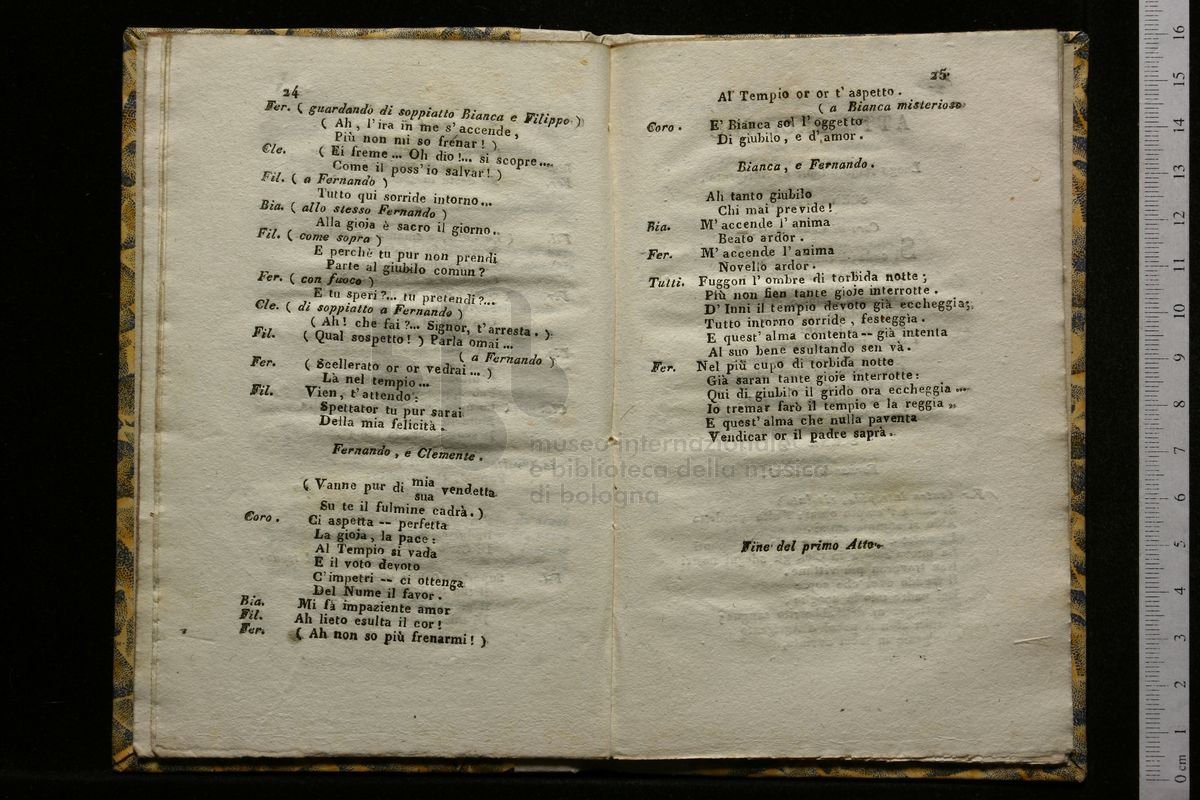 24
Fer. ( guardando di soppiatto Bianca e Filippo )
( Ah, l'ira in me s'accende,
Più non mi so frenar! )
Cle. ( Ei freme ... Oh dio!... si scopre....
Come il poss'io salvar! )
Fil. ( a Fernando )
Tutto qui sorride intorno...
Bia. ( allo stesso Fernando )
Alla gioja è sacro il giorno..
Fil. ( come sopra )
E perchè tu pur non prendi
Parte al giubilo comun?
Fer. ( con fuoco )
E tu speri?... tu pretendi?...
Cle. ( di soppiatto a Fernando )
( Ah! che fai?... Signor, t'arresta. )
Fil. ( Qual sospetto! ) Parla omai ...
( a Fernando )
Fer. ( Scellerato or or vedrai ... )
Là nel tempio ...
Fil. Vien, t'attendo:
Spettator tu pur sarai
Della mia felicità.
Fernando, e Clemente.
( Vanne pur di mia vendetta
sua
Su te il fulmine cadrà. )
Coro. Ci aspetta -- perfetta
La gioja, la pace:
Al Tempio si vada
E il voto devoto
C'impetri -- ci ottenga
Del Nume il favor.
Bia. Mi fà impaziente amor
Fil. Ah lieto esulta il cor!
Fer. ( Ah non so più frenarmi! )
25
Al Tempio or or t'aspetto.
( a Bianca misterioso
Coro. E' Bianca sol l'oggetto
Di giubilo, e d'amor.
Bianca, e Fernando.
Ah tanto giubilo
Chi mai previde!
Bia. M'accende l'anima
Beato ardor.
Fer. M'accende l'anima
Novello ardor.
Tutti. Fuggon l'ombre di torbida notte;
Più non fien tante gioie interrotte.
D'Inni il tempio devoto già eccheggia;
Tutto intorno sorride, festeggia.
E quest'alma contenta -- già intenta
Al suo bene esultando sen và.
Fer. Nel più cupo di torbida notte
Già saran tante gioie interrotte:
Qui di giubilo il grido ora eccheggia ...
Io tremar farò il tempio e la reggia,
E quest'alma che nulla paventa
Vendicar or il padre saprà.
Fine del primo Atto.
museo internazionale
e biblioteca della musica
di bologna
0 cm 1 2 3 4 5 6 7 8 9 10 11 12 13 14 15 16